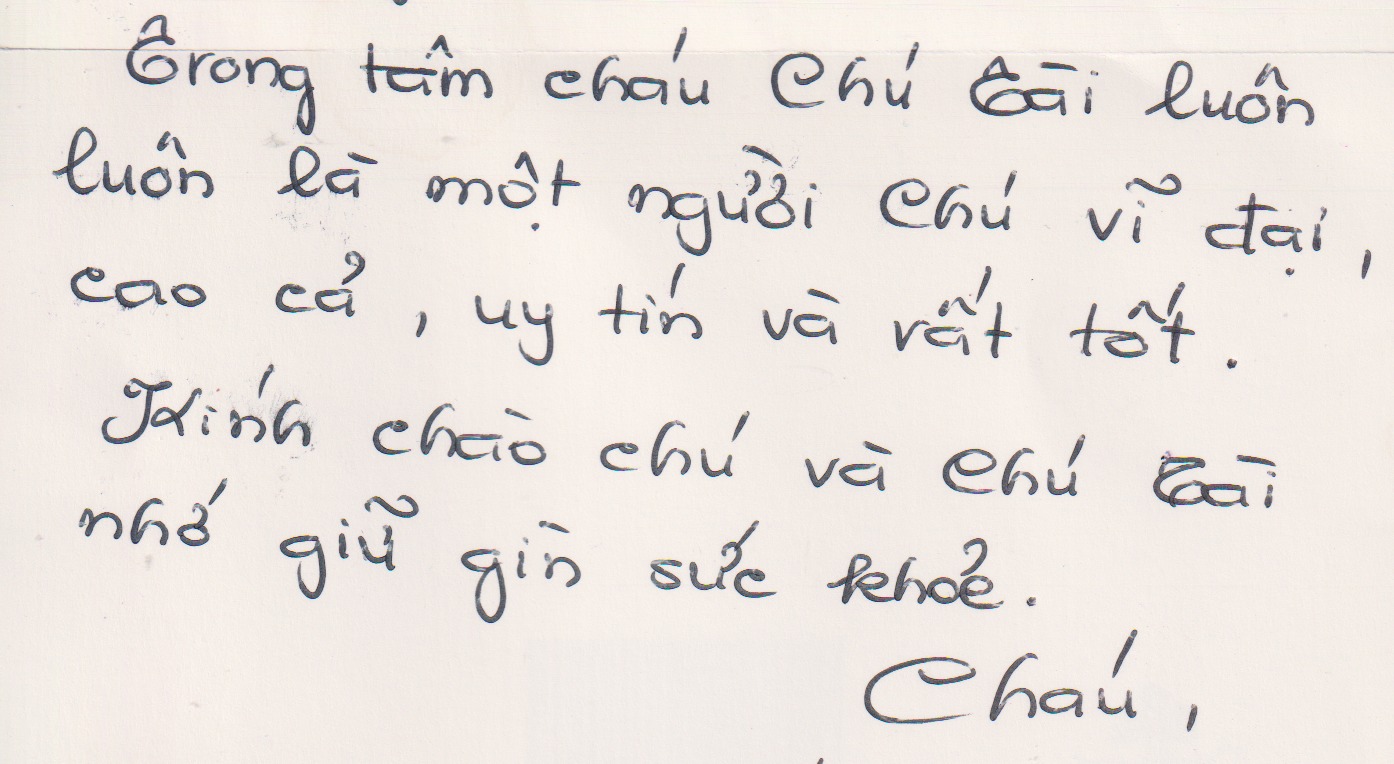 Trong tâm cháu Chú Tài luôn
luôn là một người Chú vĩ đại,
cao cả, uy tín và rất tốt.
Kính chào chú và Chú Tài
nhớ giữ gìn sức khoẻ.
Cháu,